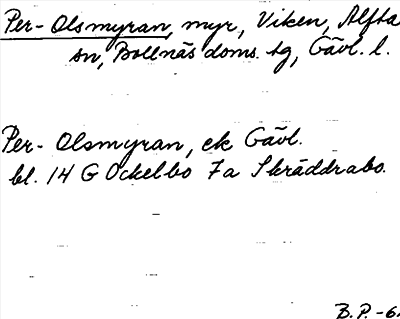 Per-Olsmyran, myr, Viken, Alfta
sn, Bollnäs doms. tg, Gävl. l.
Per-Olsmyran, ek Gävl.
bl. 14 G Ockelbo 7a Skräddrabo.
B.P.-6.